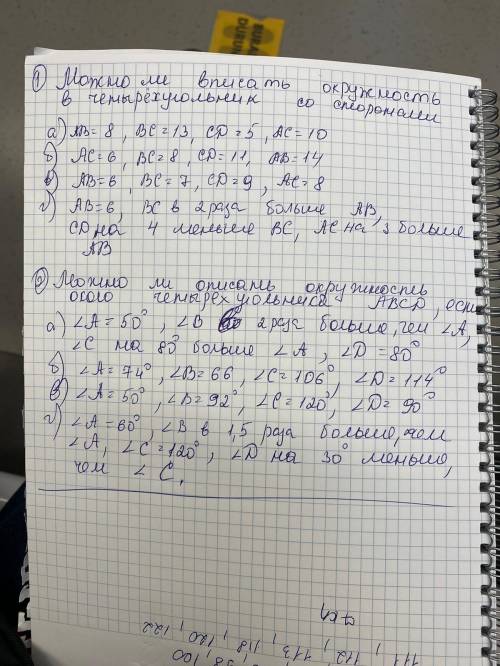 ① Можно ли вписать окружность
в четырёхугольник со сторонами
а) AB = 8, BC = 13, CD = 5, AC = 10
б) AC = 6, BC = 8, CD = 11, AB = 14
в) AB = 6, BC = 7, CD = 9, AC = 8
г) AB = 6, BC в 2 раза больше AB,
CD на 4 меньше BC, AC на 3 больше
AB
② Можно ли описать окружность
около четырёхугольника ABCD, если
а) ∠A = 50°, ∠B в 2 раза больше, чем ∠A,
∠C на 80° больше ∠A, ∠D = 80°
б) ∠A = 74°, ∠B = 66, ∠C = 106°, ∠D = 114°
в) ∠A = 50°, ∠B = 92°, ∠C = 120°, ∠D = 90°
г) ∠A = 60°, ∠B в 1,5 раза больше, чем
∠A, ∠C = 120°, ∠D на 30° меньше,
чем ∠C.
111, 112, 113, 118, 120, 122
100